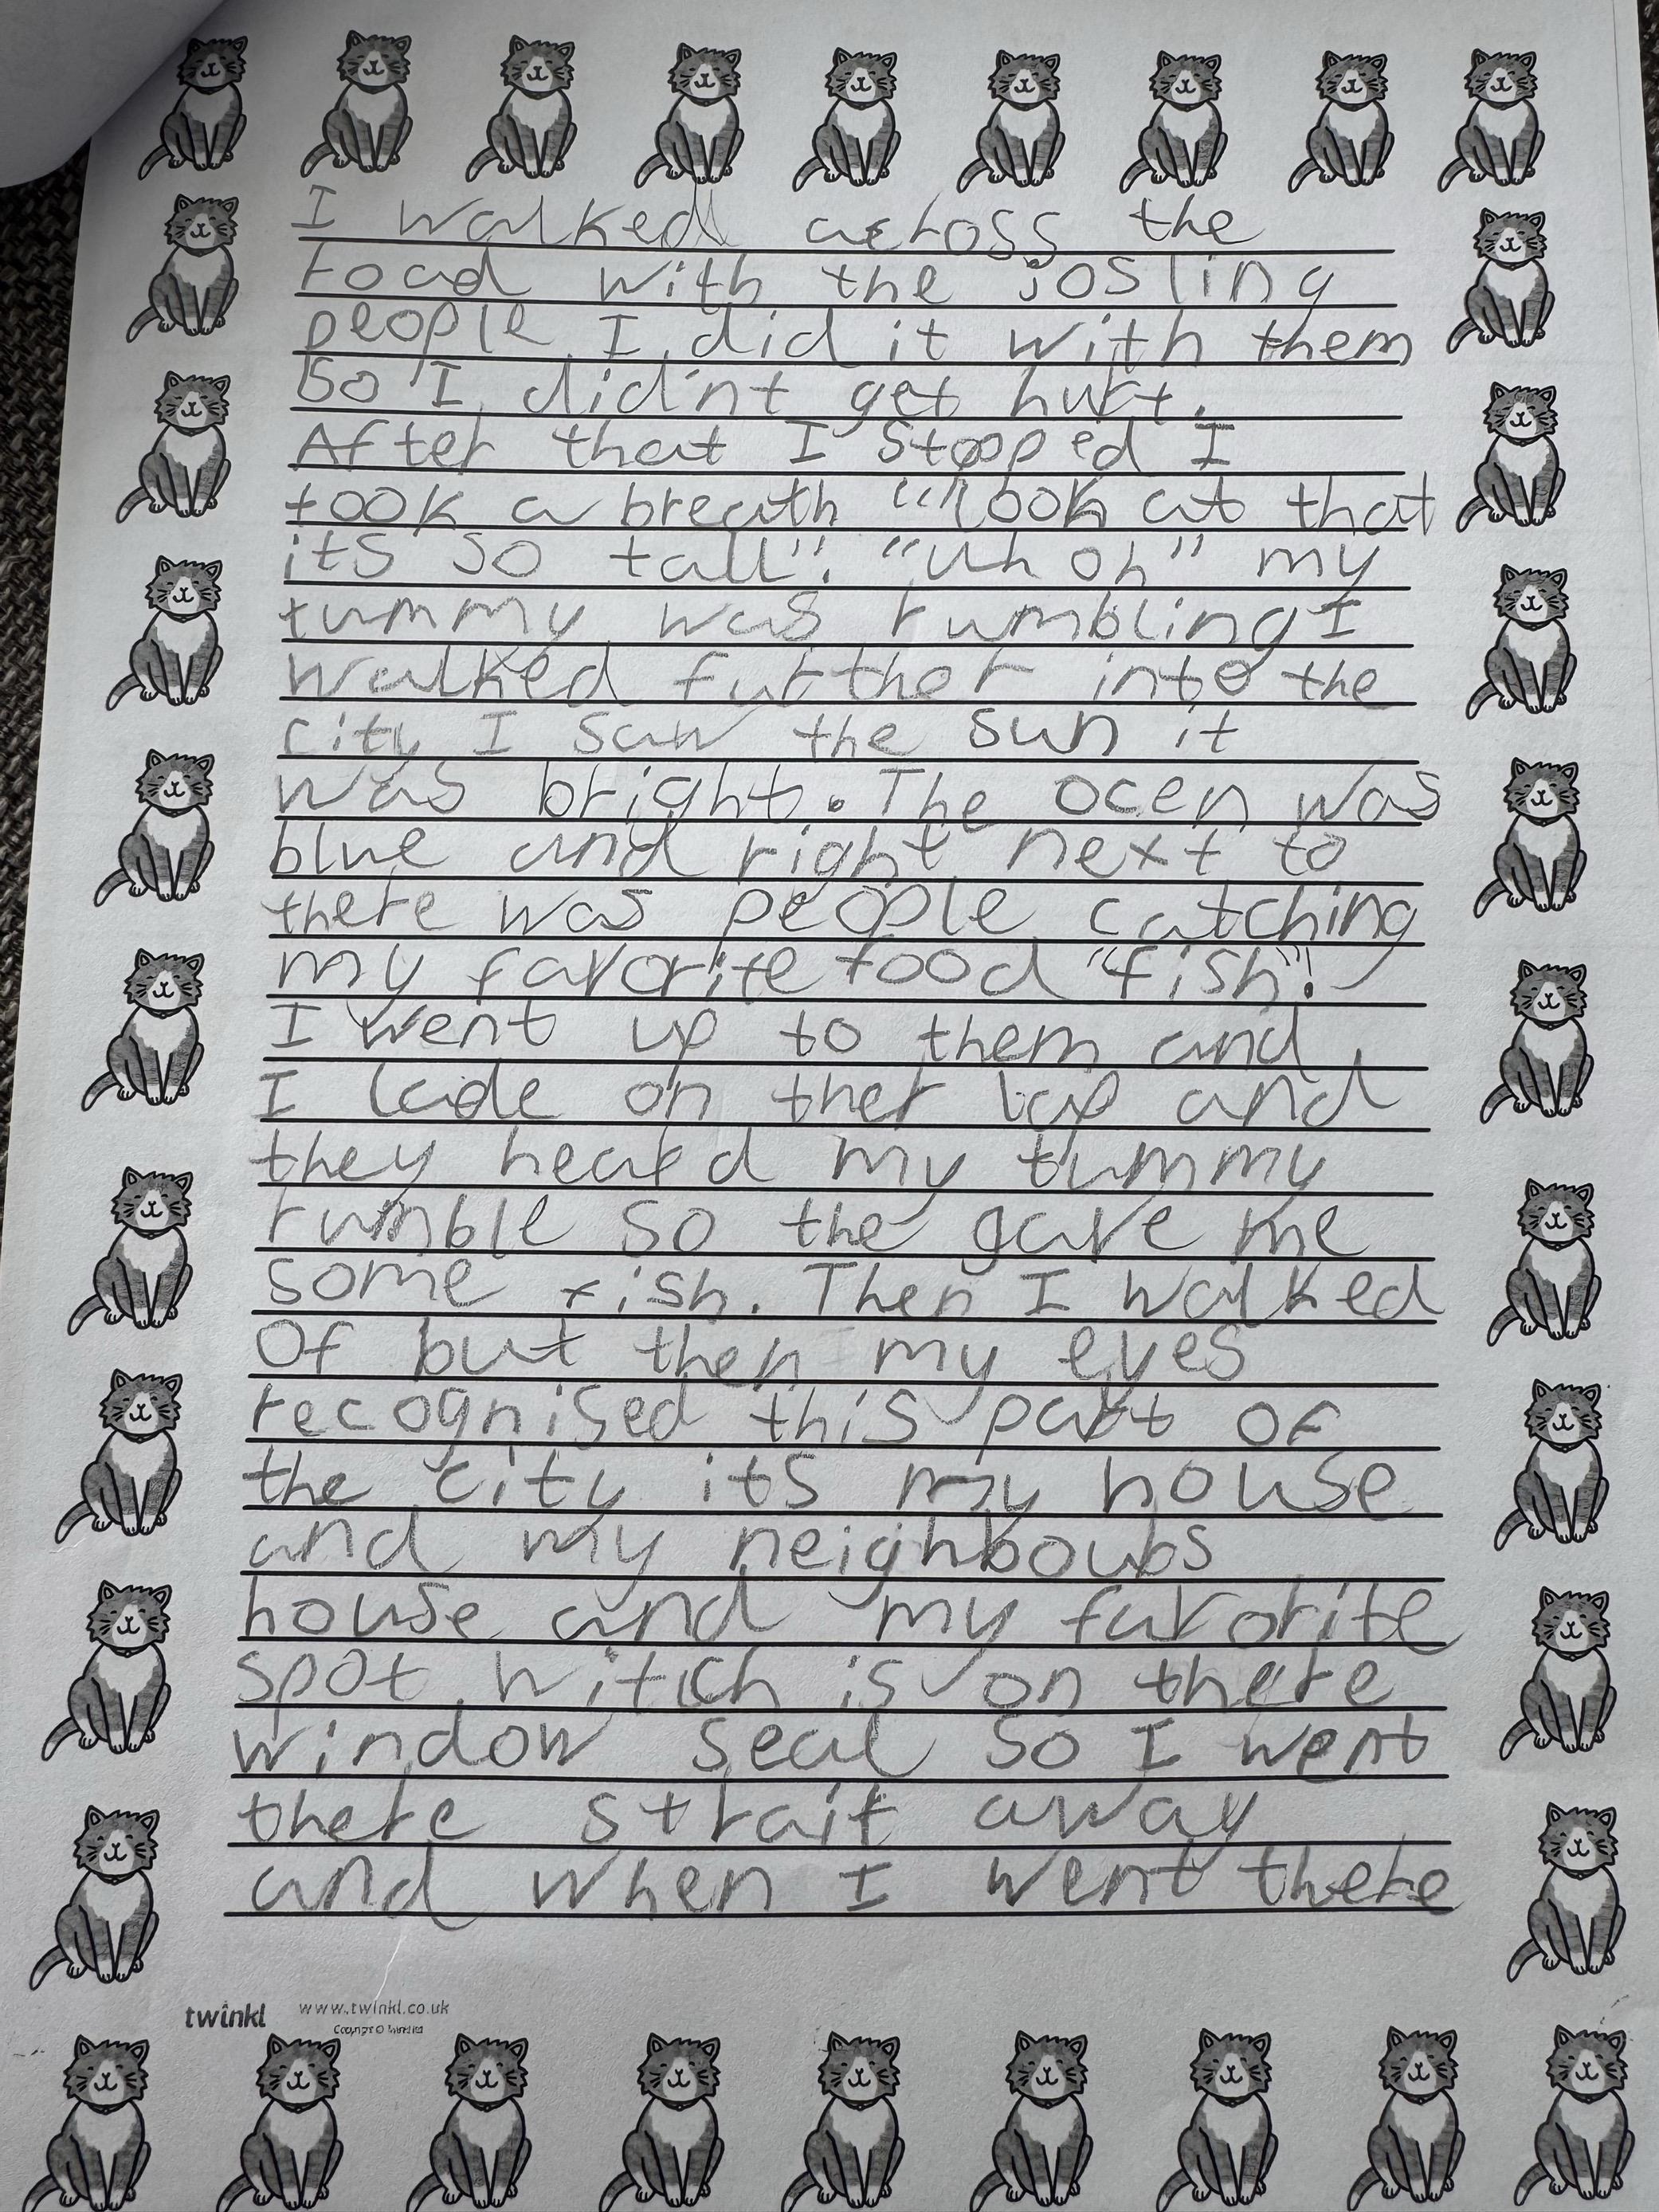 I walked across the
road with the josling
people I did it with them
so I did'nt get hurt.
After that I stopped I
took a breath "look at that
its so tall"! "uh oh" my
tummy was rumbling I
walked further into the
city I saw the sun it
was bright. The ocen was
blue and right next to
there was people catching
my favorite food "fish"!
I went up to them and
I lade on ther lap and
they heard my tummy
rumble so the gave me
some fish. Then I walked
of but then my eyes
recognised this part of
the city its my house
and my neighbours
house and my favorite
spot witch is on there
window seal so I went
there strait away
and when I went there
twinkl www.twinkl.co.uk